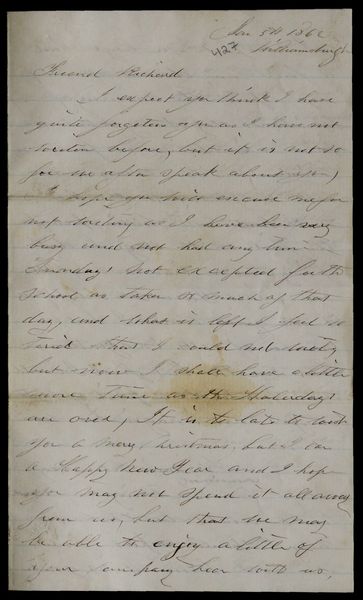 Jan 5th 186
427 Williamsburgh
Friend Richard
I expect you think I have
quite forgotten you as I have not
written before, but it is not so
for we often speak about you,
I hope you will excuse me for
not writing as I have been very
busy and not had any time
Sundays not excepted for the
school as taken so much of that
day, and what is left I feel so
tired that I could not write,
but now I shall have a little
more time as the Holerdays
are over, It is to late to wish
you a merry Christmas, but I can
a Happy New Year and I hope
you may not spend it all away
from us, but that we may
be able to enjoy a little of
your company hear with us,